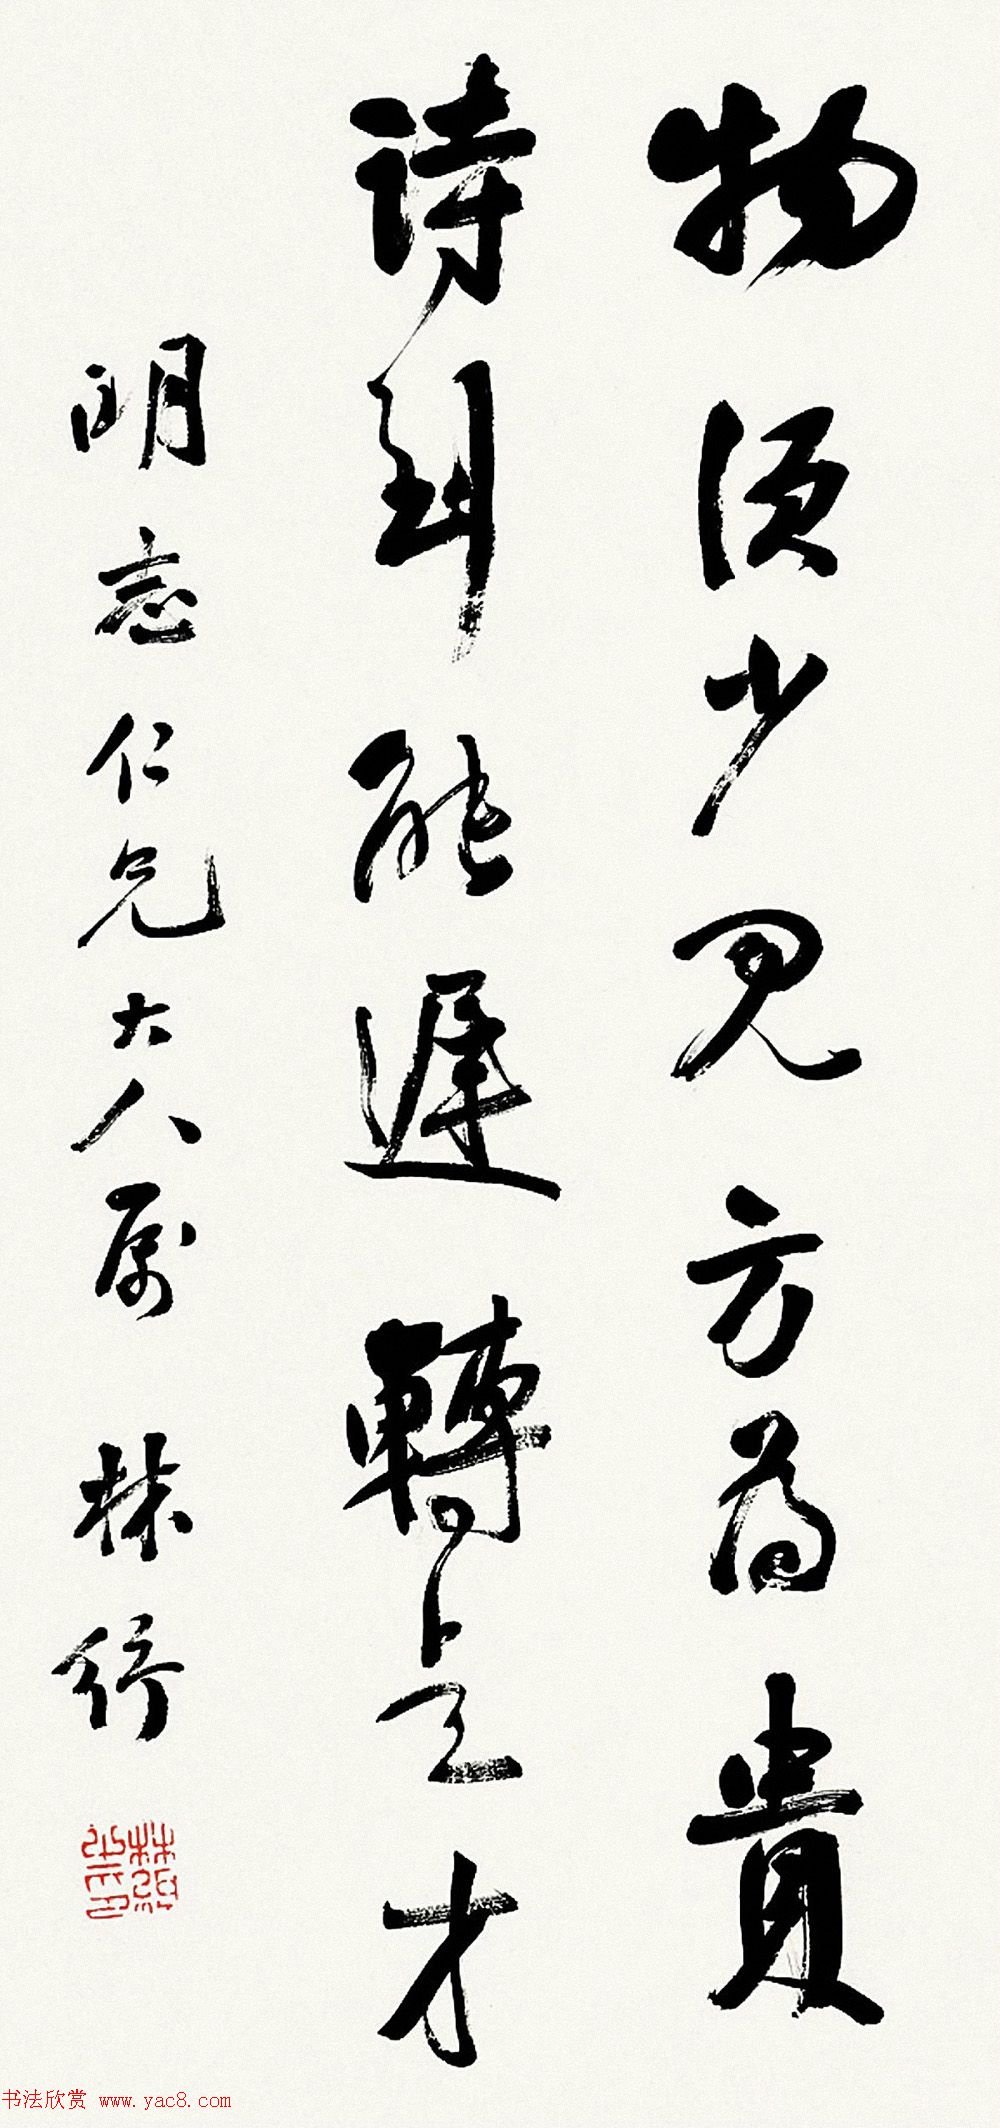 物須少見方為貴
詩到能遲轉是才
明志仁兄大人屬 林紓
書法欣賞 www.yac8.com